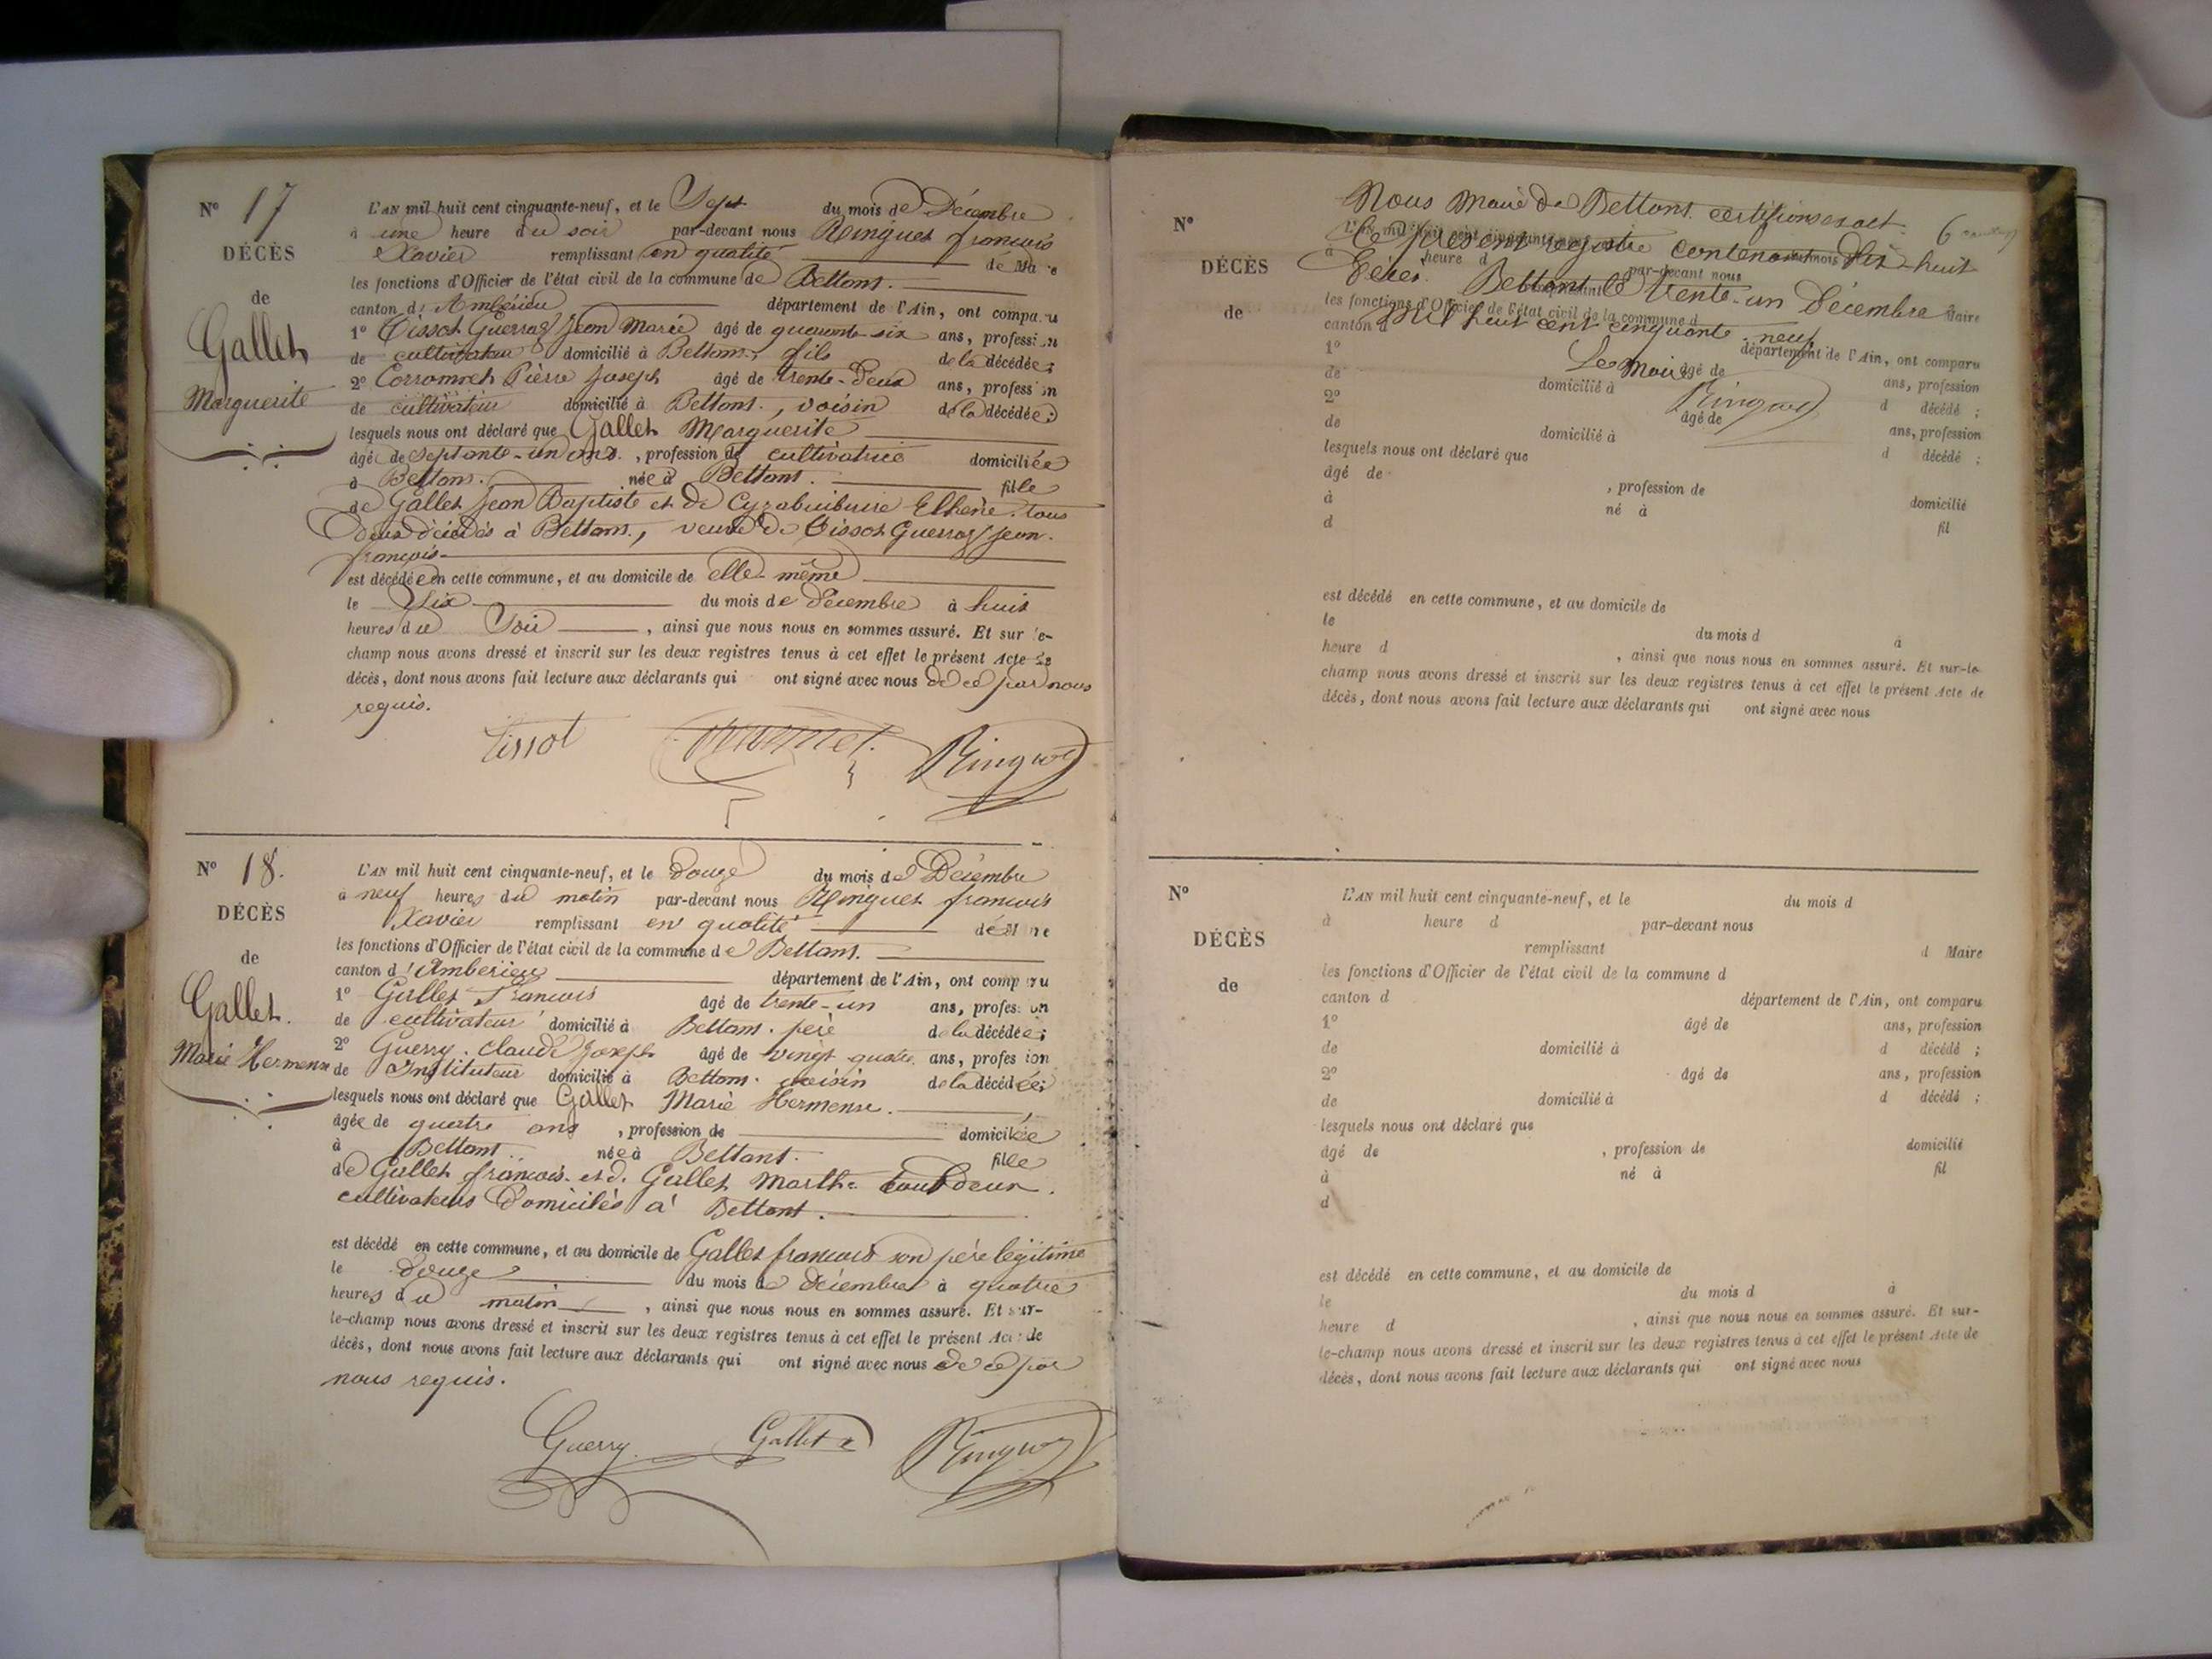 N° 17
DÉCÈS
de
Gallet
Marguerite
L'AN mil huit cent cinquante-neuf, et le Sept du mois de Décembre
à une heure du soir par-devant nous Ringuet françois
Xavier remplissant en qualité de Maire
les fonctions d'Officier de l'état civil de la commune de Bettans.
canton d'Ambérieu département de l'Ain, ont comparu
1° Tissot Guerraz Jean Marie âgé de quarante-six ans, profession
de cultivateur domicilié à Bettans, fils de la décédée ;
2° Pierre Joseph âgé de trente-deux ans, profession
de cultivateur domicilié à Bettans, voisin de la décédée ;
lesquels nous ont déclaré que Gallet Marguerite
âgé de septante-un ans, profession de cultivatrice domiciliée
à Bettans. née à Bettans. fille
de Gallet Jean Baptiste et de tous
deux décédés à Bettans, veuve de Tissot Guerraz Jean
françois
est décédée en cette commune, et au domicile de elle-même
le Six du mois de Décembre à huit
heures du Soir, ainsi que nous nous en sommes assuré. Et sur le-
champ nous avons dressé et inscrit sur les deux registres tenus à cet effet le présent Acte de
décès, dont nous avons fait lecture aux déclarants qui ont signé avec nous de ce par nous
requis.
Tissot Ringuet
N° 18.
DÉCÈS
de
Gallet.
Marie Hermense
L'AN mil huit cent cinquante-neuf, et le douze du mois de Décembre
à neuf heures du matin par-devant nous Ringuet francois
Xavier remplissant en qualité de Maire
les fonctions d'Officier de l'état civil de la commune de Bettans.
canton d'Amberieu département de l'Ain, ont comparu
1° Gallet Francois âgé de trente-un ans, profession
de cultivateur domicilié à Bettans. père de la décédée ;
2° Guerry. Claude Joseph âgé de vingt quatre ans, profession
de Instituteur domicilié à Bettans. voisin de la décédée ;
lesquels nous ont déclaré que Gallet Marie Hermense.
âgée de quatre ans, profession de domiciliée
à Bettans. née à Bettans. fille
de Gallet francois. et d. Gallet Marthe tous deux
cultivateurs Domiciliés à Bettans.
est décédé en cette commune, et au domicile de Gallet francois son père légitime
le douze du mois de décembre à quatre
heures du matin, ainsi que nous nous en sommes assuré. Et sur-
le-champ nous avons dressé et inscrit sur les deux registres tenus à cet effet le présent Acte de
décès, dont nous avons fait lecture aux déclarants qui ont signé avec nous de ce par
nous requis.
Guerry. Gallet Ringuet
Nous Maire de Bettans. certifions exact
le présent registre contenant dix-huit
Bettans le trente-un Décembre
mil huit cent cinquante-neuf
Le Maire
Ringuet
N°
DÉCÈS
de
L'AN mil huit cent cinquante-neuf, et le du mois d
à heure d par-devant nous
remplissant d Maire
les fonctions d'Officier de l'état civil de la commune d
canton d département de l'Ain, ont comparu
1° âgé de ans, profession
de domicilié à d décédé ;
2° âgé de ans, profession
de domicilié à d décédé ;
lesquels nous ont déclaré que
âgé de , profession de domicilié
à né à fil
d
est décédé en cette commune, et au domicile de
le du mois d à
heure d , ainsi que nous nous en sommes assuré. Et sur-le-
champ nous avons dressé et inscrit sur les deux registres tenus à cet effet le présent Acte de
décès, dont nous avons fait lecture aux déclarants qui ont signé avec nous
N°
DÉCÈS
de
L'AN mil huit cent cinquante-neuf, et le du mois d
à heure d par-devant nous
remplissant d Maire
les fonctions d'Officier de l'état civil de la commune d
canton d département de l'Ain, ont comparu
1° âgé de ans, profession
de domicilié à d décédé ;
2° âgé de ans, profession
de domicilié à d décédé ;
lesquels nous ont déclaré que
âgé de , profession de domicilié
à né à fil
d
est décédé en cette commune, et au domicile de
le du mois d à
heure d , ainsi que nous nous en sommes assuré. Et sur-
le-champ nous avons dressé et inscrit sur les deux registres tenus à cet effet le présent Acte de
décès, dont nous avons fait lecture aux déclarants qui ont signé avec nous